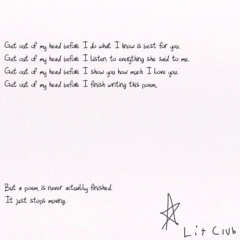 Get out of my head before I do what I know is best for you.
Get out of my head before I listen to everything she said to me.
Get out of my head before I show you how much I love you.
Get out of my head before I finish writing this poem.
But a poem is never actually finished.
It just stops moving.
Lit Club